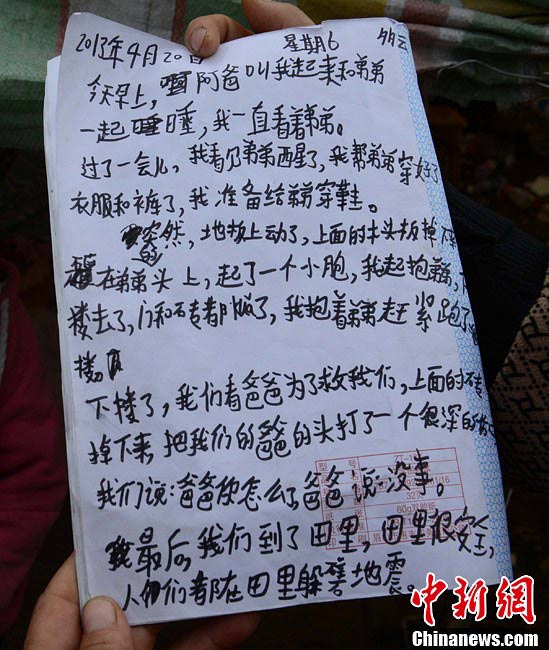 2013年4月20日 星期6
今天早上,阿爸叫我起来和弟弟
一起睡,我一直看着弟弟。
过了一会儿,我看见弟弟西星了,我帮弟弟穿好了
衣服和裤子,我准备给弟弟穿鞋。
突然,地板上动了,上面的木头板掉
在弟弟头上,起了一个小胞,我起抱弟弟,
楼去了,门和石专都
了,我抱着弟弟赶紧跑了
楼。
下楼了,我们看爸爸为了救我们,上面的石专
掉下来,把我们的爸爸的头打了一个很深的
我们说:爸爸你怎么了,爸爸说:没事。
最后,我们到了田里,田里很安全,
人们都在田里躲着地震。
中新网
Chinanews.com